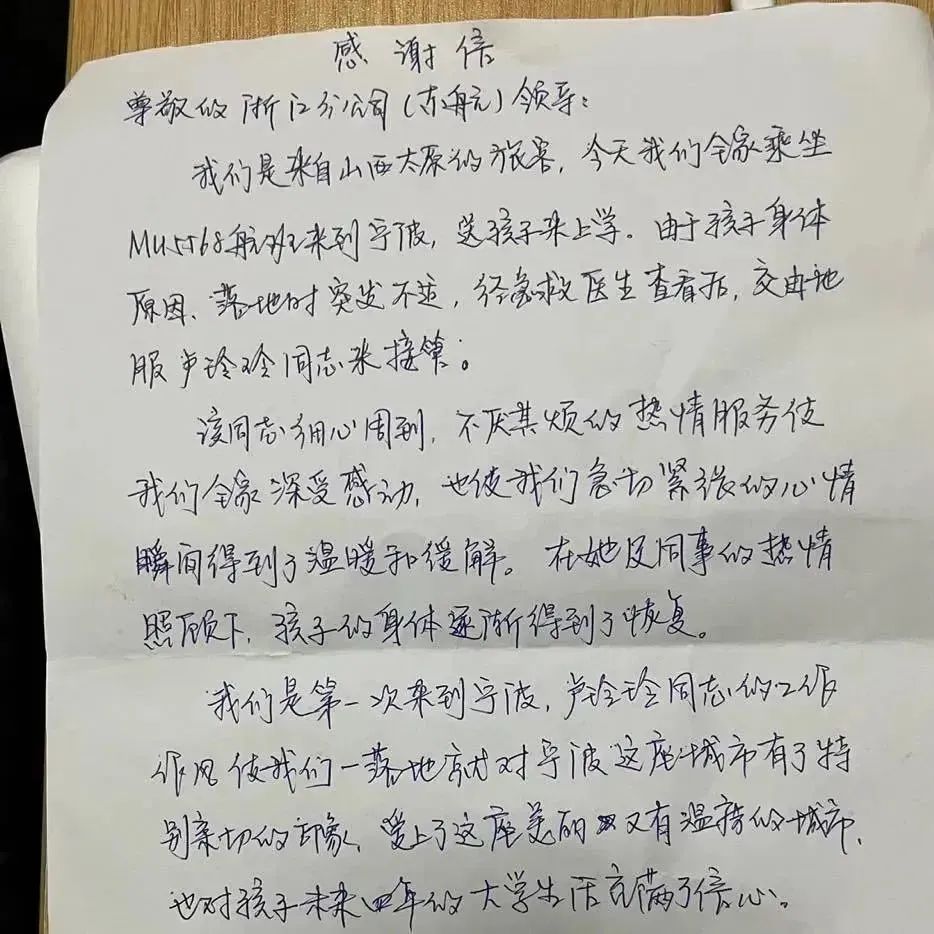 感谢信
尊敬的浙江分公司(东航)领导:
我们是来自山西太原的旅客,今天我们全家乘坐
MU5568航班来到宁波,送孩子来上学。由于孩子身体
原因、落地时突发不适,经急救医生查看后,交由地
服卢玲玲同志来接管。
该同志细心周到,不厌其烦的热情服务使
我们全家深受感动,也使我们急切紧张的心情
瞬间得到了温暖和缓解。在她及同事的热情
照顾下,孩子的身体逐渐得到了恢复。
我们是第一次来到宁波,卢玲玲同志的工作
作风使我们一落地就对宁波这座城市有了特
别亲切的印象,爱上了这座美丽又有温情的城市,
也对孩子未来四年的大学生活充满了信心。